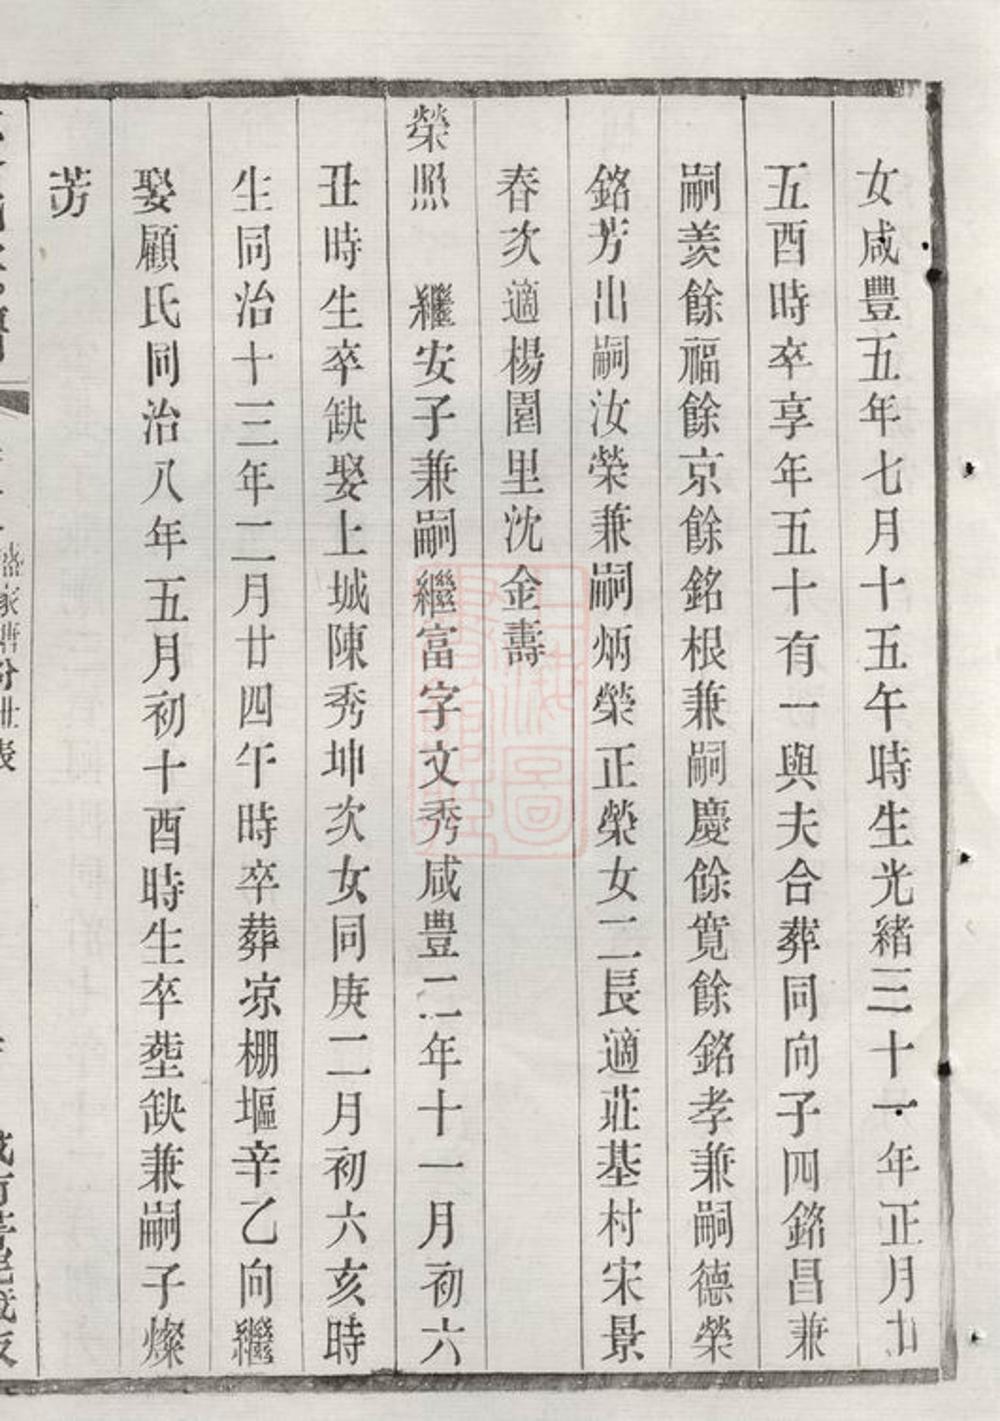 女咸豐五年七月十五午時生光緒三十一年正月廿
五酉時卒享年五十有一與夫合葬同向子四銘昌兼
嗣羨餘福餘京餘銘根兼嗣慶餘寬餘銘孝兼嗣德榮
銘芳出嗣汝榮兼嗣炳榮正榮女二長適莊基村宋景
春次適楊園里沈金壽
榮照 繼安子兼嗣繼富字文秀咸豊二年十一月初六
丑時生卒缺娶上城陳秀坤次女同庚二月初六亥時
生同治十三年二月廿四午時卒葬凉棚堰辛乙向繼
娶顧氏同治八年五月初十酉時生卒塟缺兼嗣子燦
芳
盛家塘分世表